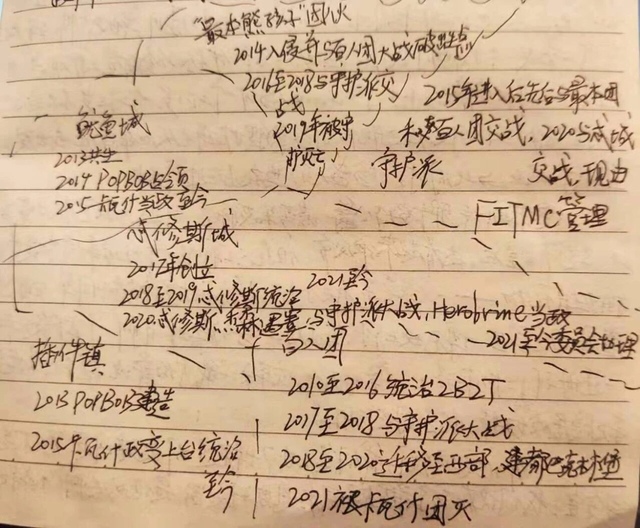 "最本熊孩子"团伙
2014入侵并与百人团大战
2016至2018与守护派交
战
2019年被守
护灭
2015年进入后先后与最本团
和百人团交战,2020与忒城
交战,现由
FITMC管理
守护派
鱿鱼城
2013共生
2014 POPBOB占领
2015卡瓦什当政至今
忒修斯城
2017年创立
2018至2019忒修斯统治
2020忒修斯 与守护派大战,Herobrine当政
2021至今
2021至今委员会管理
插件镇
2013 POPBOB建造
2015年卡瓦什政变上台统治
至今
百人团
2010至2016统治2B2T
2017至2018与守护派大战
2018至2020迁移至西部,建都巴克木堡
2021被卡瓦什团灭